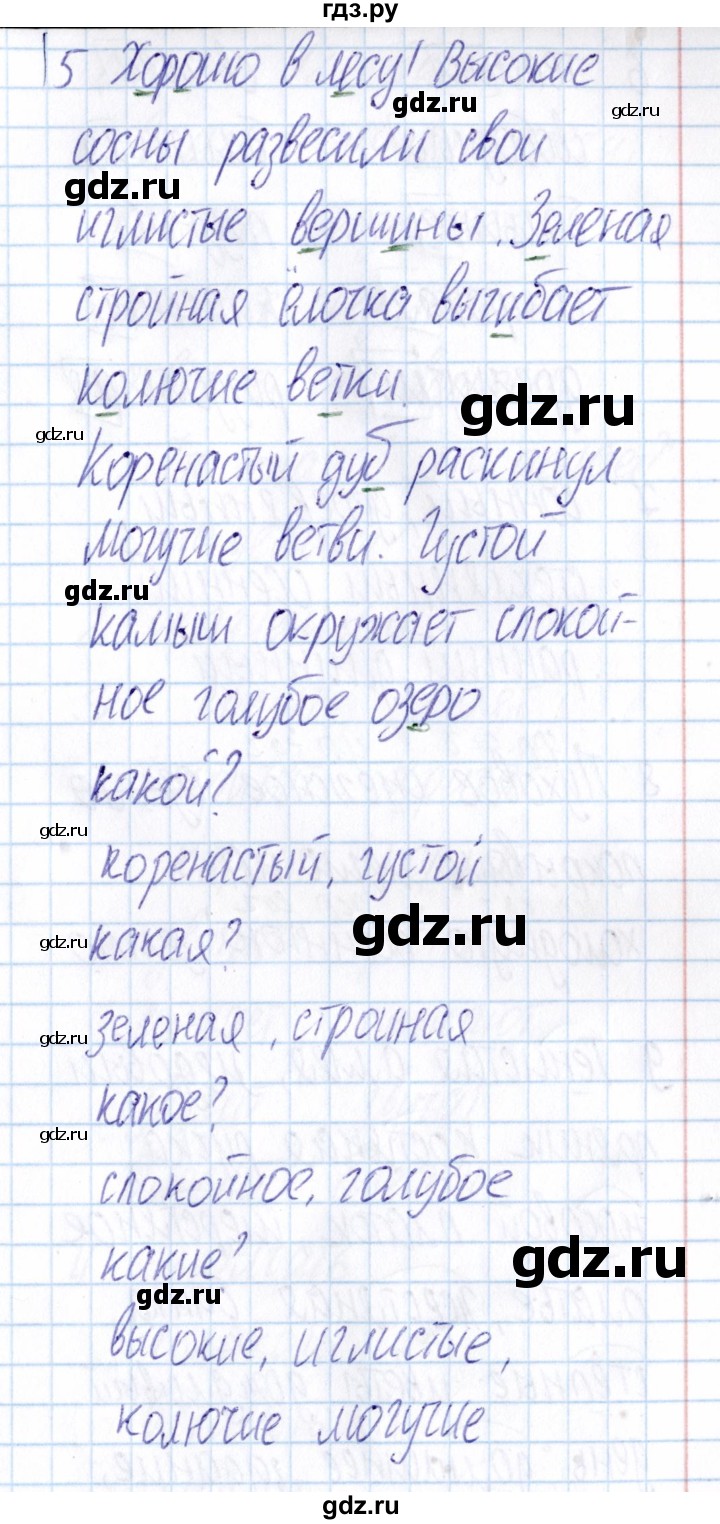 гдз.ру
5 Хорошо в лесу! Высокие
gdz.ru
gdz.ru
сосны развесили свои
gdz.ru
иглистые вершины. Зеленая
стройная ёлочка выгибает
колючие ветки.
gdz.ru
gdz.ru
Коренастый дуб раскинул
могучие ветви. Густой
gdz.ru
камыш окружает спокой-
ное голубое озеро
какой?
gdz.ru
коренастый, густой
gdz.ru
какая?
gdz.ru
зеленая, стройная
gdz.ru
какое?
gdz.ru
спокойное, голубое
какие?
gdz.ru
gdz.ru
высокие, иглистые,
колючие могучие
gdz.ru